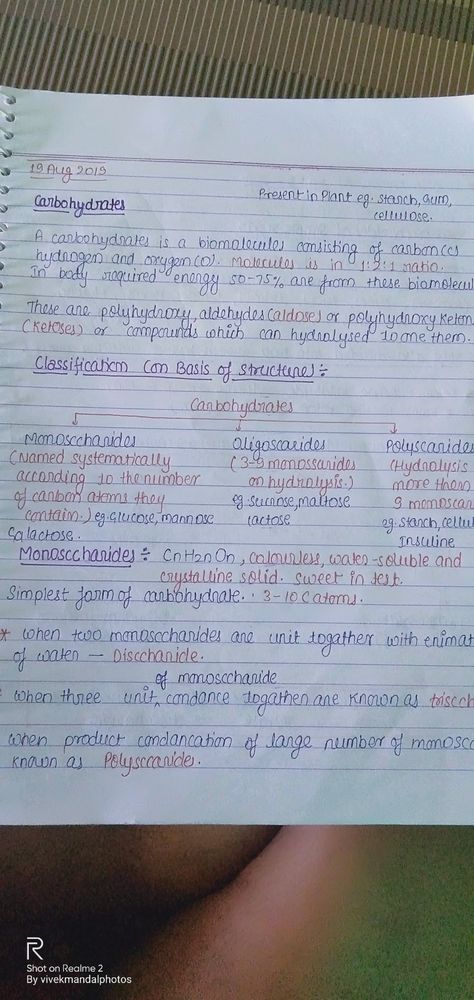 19 Aug 2019
Present in Plant eg. Starch, Gum,
cellulose.
Carbohydrates
A carbohydrates is a biomolecules consisting of carbon(c)
hydrogen and oxygen(o). Molecules is in 1:2:1 ratio.
In body required energy 50-75% are from these biomolecul
These are polyhydroxy, aldehydes (aldose) or polyhydroxy Keton
(Ketoses) or compounds which can hydrolysed to one them.
Classification (on Basis of structure) ÷
Carbohydrates
Monosccharides
(Named systematically
according to the number
of carbon atoms they
contain.) eg. Glucose, mannose
Galactose.
Oligoscarides
(3-9 monossarides
on hydrolysis.)
eg. sucrose, maltose
lactose
Polyscarides
(Hydrolysis
more them
9 monoscar
eg. starch, cellul
Insuline
Monosccharides ÷ CnH2nOn, colourless, water-soluble and
crystalline solid. sweet in test.
Simplest form of carbohydrate. 3-10 C atoms.
* when two monosccharides are unit togather with enimat
of water — Disccharide.
of monosccharide
when three unit, condance togather are known as triscch
when product condancation of large number of monoscc
known as Polysccarides.
R
Shot on Realme 2
By vivekmandalphotos